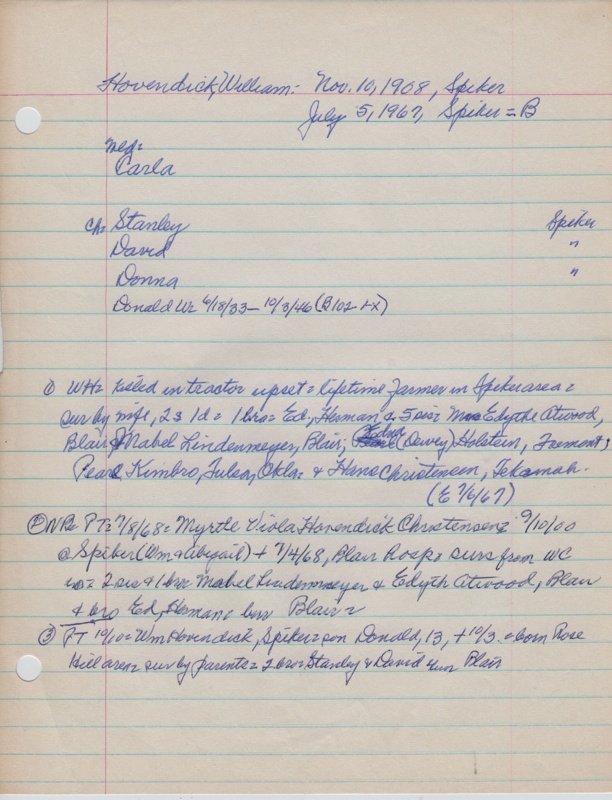 Hovendick, William:- Nov. 10, 1908, Spiker
July 5, 1967, Spiker = B
Md:
Carla
Ch: Stanley Spiker
David "
Donna "
Donald Wm 6/18/33 - 10/3/46 (B102-LX)
① WH= killed in tractor upset = lifetime farmer in Spiker area =
sur by wife, 2s 1d = 1 bro = Ed, Herman & 5 sis= Mrs Edythe Atwood,
Blair; Mabel Lindenmeyer, Blair; Edna (Dewey) Holstein, Fremont;
Pearl Kimbro, Tulsa, Okla. & Hans Christensen, Tekamah.
(E 7/6/67)
② PT= 7/8/68= Myrtle Viola Hovendick Christensen= 9/10/00
@ Spiker (Wm & Abigail) + 7/4/68, Blair Hosp= surs from WC
= 2 sis & 1 bro= Mabel Lindenmeyer & Edyth Atwood, Blair
& bro Ed, Herman= bur Blair=
③ PT 10/10= Wm Hovendick, Spiker= son Donald, 13, + 10/3. = born Rose
Hill area= sur by parents= 2 bro= Stanley & David = bur Blair